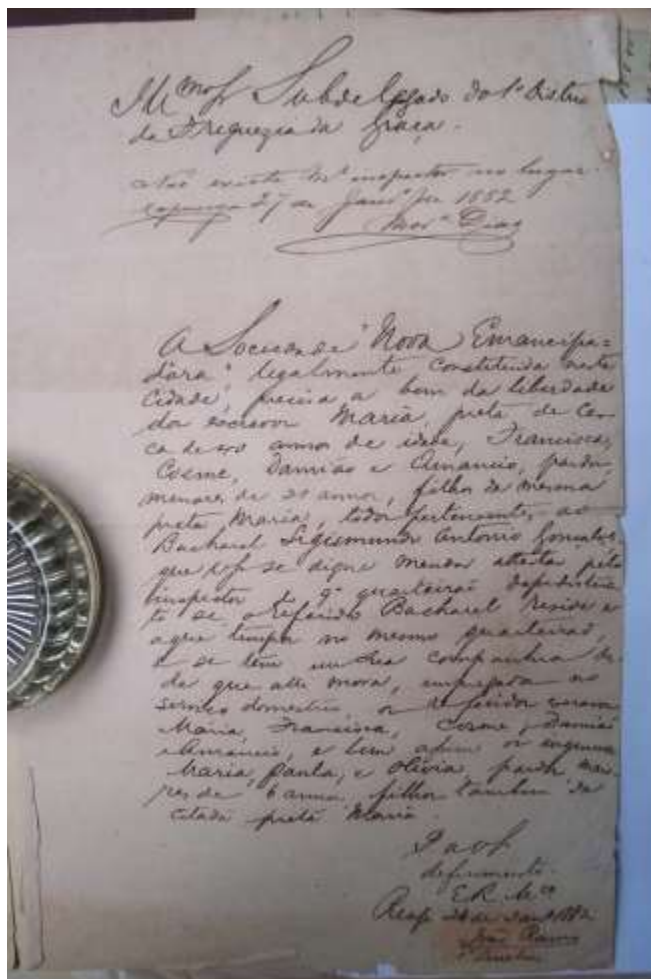 Illmo Sr Subdelegado do 1º Distro
da Freguezia da Graça.
Não existe inspector no lugar
Capunga 27 de Janrº de 1882
Dias
A Sociedade "Nova Emancipa=
dora", legalmente constituida nesta
Cidade, precisa a bem da liberdade
dos escravos Maria, preta de cer-
ca de annos de idade, Francisca,
Cosme, Damião e Amancio, pardos
menores de 21 annos, filhos da mesma
preta Maria, todos pertencentes ao
Bacharel Sigismundo Antonio Gonçalves
que VS se digne mandar attestar pelo
inspector do 9º quarteirão deste
to se o referido Bacharel reside e
a que tempo no mesmo quarteirão,
e se tem em sua companhia des-
de que alli mora, empregados no
serviço domestico os referidos escravos
Maria, Francisca, Cosme, Damião
e Amancio, e bem assim os ingenuos
Maria, Paula, e Olivia, pardos, maio-
res de 6 annos, filhos tambem da
citada preta Maria.
P a VS
deferimento.
E. R. Mce
Recife 26 de Janrº 1882
João Ramos